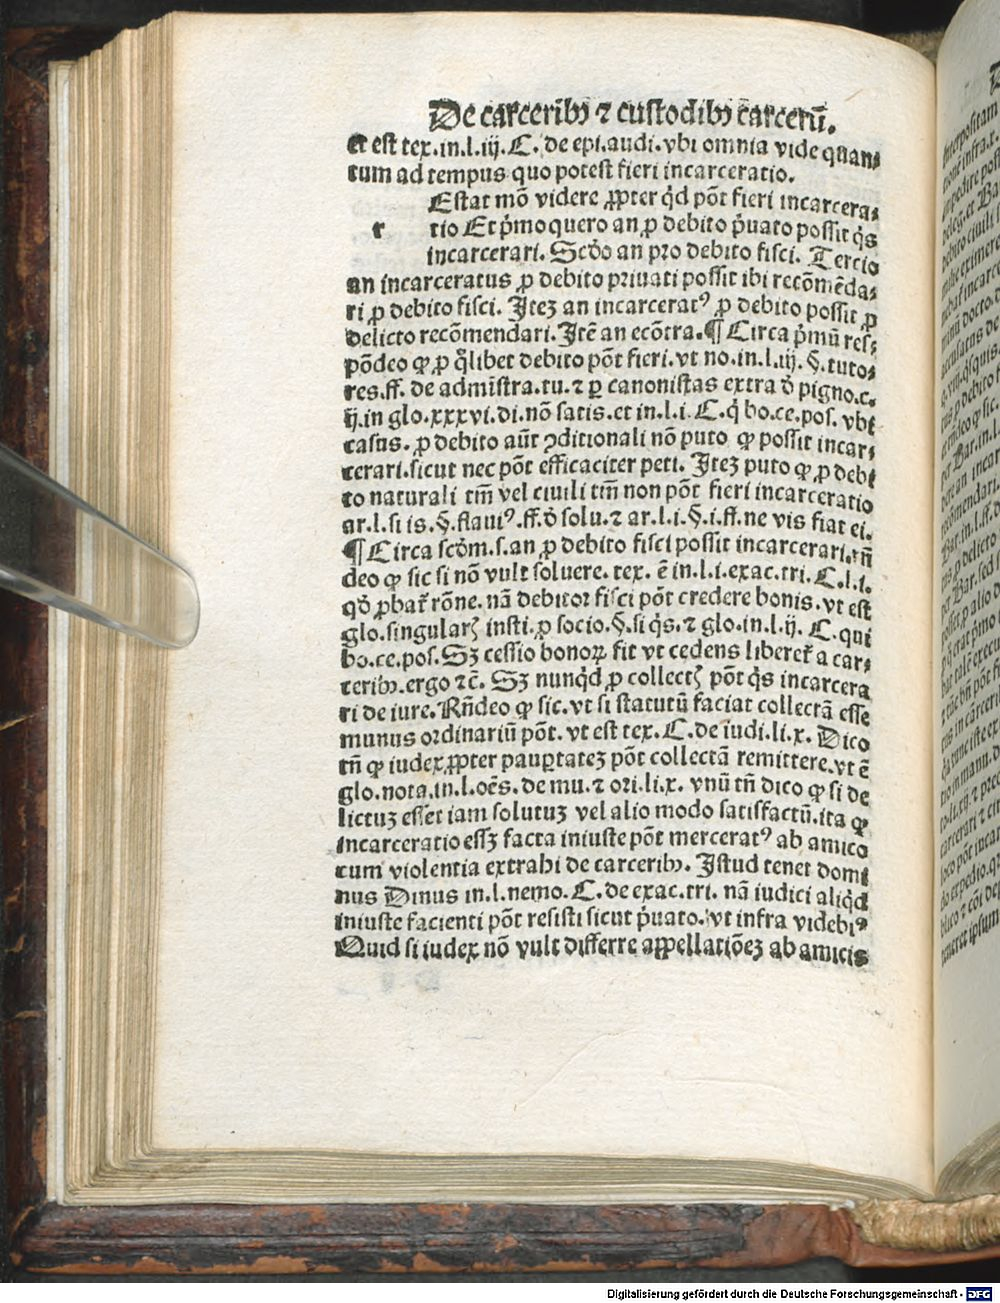 De carceribꝫ ⁊ custodibꝫ carcerū.
et est tex.in.l.iij.C. de epi.audi.vbi omnia vide quan⸗
tum ad tempus quo potest fieri incarceratio.
Estat mō videre ꝓpter qͥd pōt fieri incarcera⸗
r tio Et pͥmo quero an ꝓ debito pͥuato possit qͥs
incarcerari. Scd̓o an pro debito fisci. Tercio
an incarceratus ꝓ debito priuati possit ibi recōmēda⸗
ri ꝓ debito fisci. Iteꝫ an incarceratꝰ ꝓ debito possit ꝓ
delicto recōmendari. Itē an ecōtra.¶ Circa pͥmū res⸗
pōdeo ꝙ ꝓ qͣlibet debito pōt fieri. vt no.in.l.iij. §.tuto⸗
res.ff. de admīstra.tu.⁊ ꝑ canonistas extra d̓ pigno.c.
ij.in glo.xxxvi.di.nō satis.et in.l.i. C.qͥ bo.ce.pos. vbi
casus. ꝓ debito aūt ꝯditionali nō puto ꝙ possit incar⸗
cerari.sicut nec pōt efficaciter peti. Iteꝫ puto ꝙ ꝓ debi
to naturali tm̄ vel ciuili tm̄ non pōt fieri incarceratio
ar.l.si is.§.flauiꝰ.ff.d̓ solu.⁊ ar.l.i.§.i.ff.ne vis fiat ei.
¶ Circa scd̓m.s.an ꝓ debito fisci possit incarcerari.rn̄
deo ꝙ sic si nō vult soluere. tex. ē in.l.i.exac.tri.C.l.i.
qd̓ ꝓbat̄ rōne. nā debitor fisci pōt credere bonis. vt est
glo.singularꝭ insti.ꝓ socio.§.si qͥs.⁊ glo.in.l.ij. C.qui
bo.ce.pos. Sꝫ cessio bonoꝝ fit vt cedens liberet̄ a car⸗
ceribꝫ.ergo ⁊c̄. Sꝫ nunqͥd ꝓ collectꝭ pōt qͥs incarcera
ri de iure. Rn̄deo ꝙ sic. vt si statutū faciat collectā esse
munus ordinariū pōt. vt est tex. C.de iudi.li.x. Dico
tn̄ ꝙ iudex ꝓpter pauꝑtateꝫ pōt collectā remittere.vt ē
glo.nota.in.l.oēs.de mu.⁊ ori.li.x. vnū tn̄ dico ꝙ si de
lictuꝫ esset iam solutuꝫ vel alio modo satisfactū.ita ꝙ
incarceratio essꝫ facta iniuste pōt merceratꝰ ab amico
cum violentia extrahi de carceribꝫ. Istud tenet domi
nus Dinus in.l.nemo. C. de exac.tri. nā iudici aliqͥd
iniuste facienti pōt resisti sicut pͥuato. vt infra videbiꝰ
Quid si iudex nō vult differre appellatiōeꝫ ab amicis
Digitalisierung gefördert durch die Deutsche Forschungsgemeinschaft - DFG